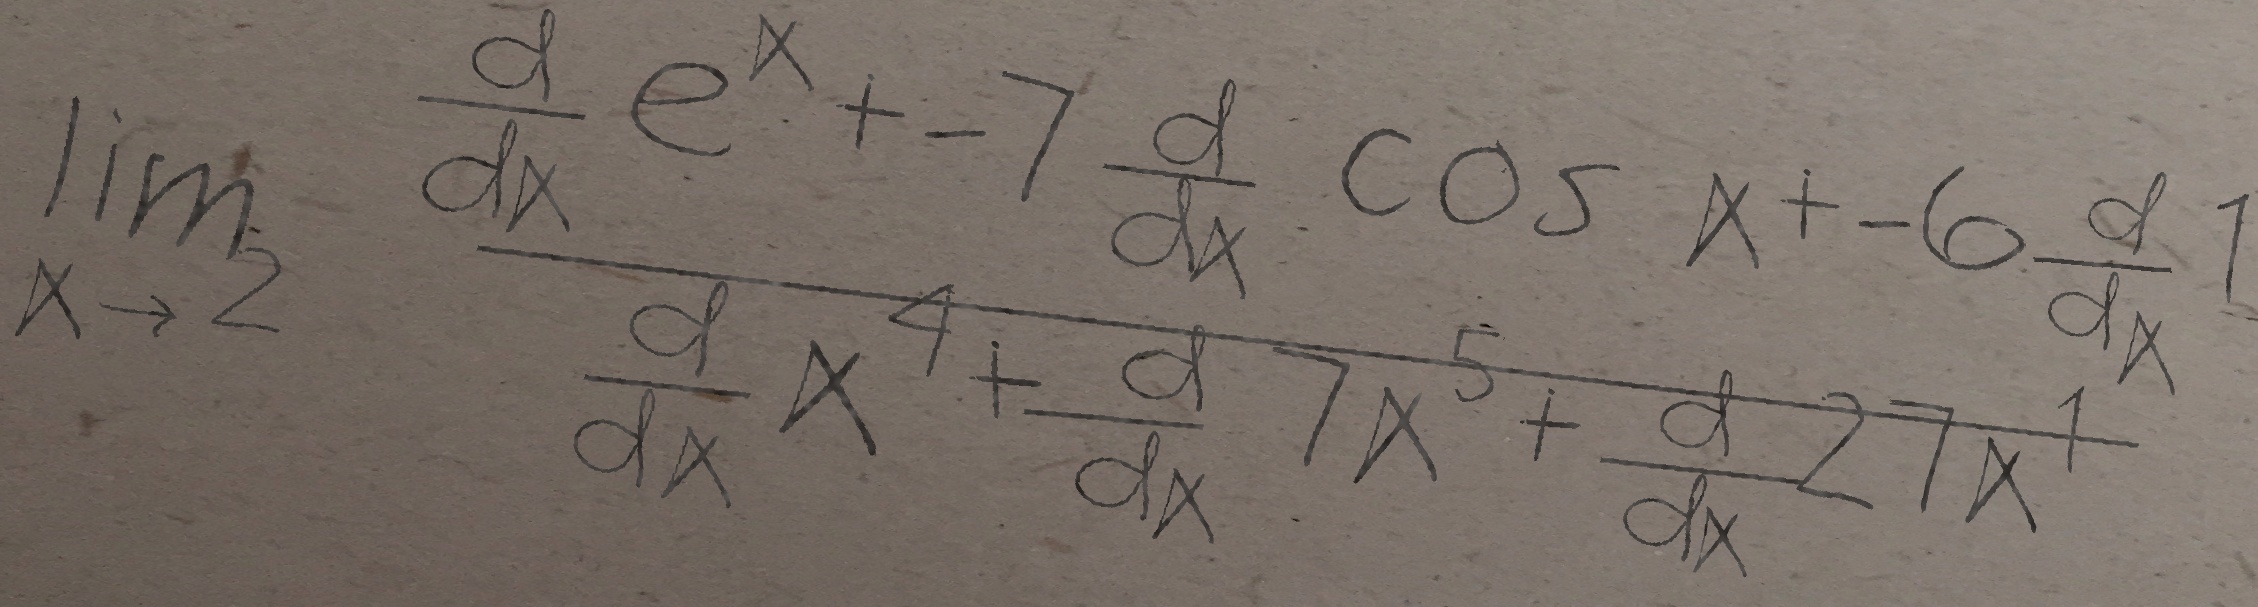 \lim_{x \to 2} \frac{\frac{d}{dx} e^{x} + -7 \frac{d}{dx} \cos x + -6 \frac{d}{dx} 1}{\frac{d}{dx} x^{4} + \frac{d}{dx} 7x^{5} + \frac{d}{dx} 27x^{1}}